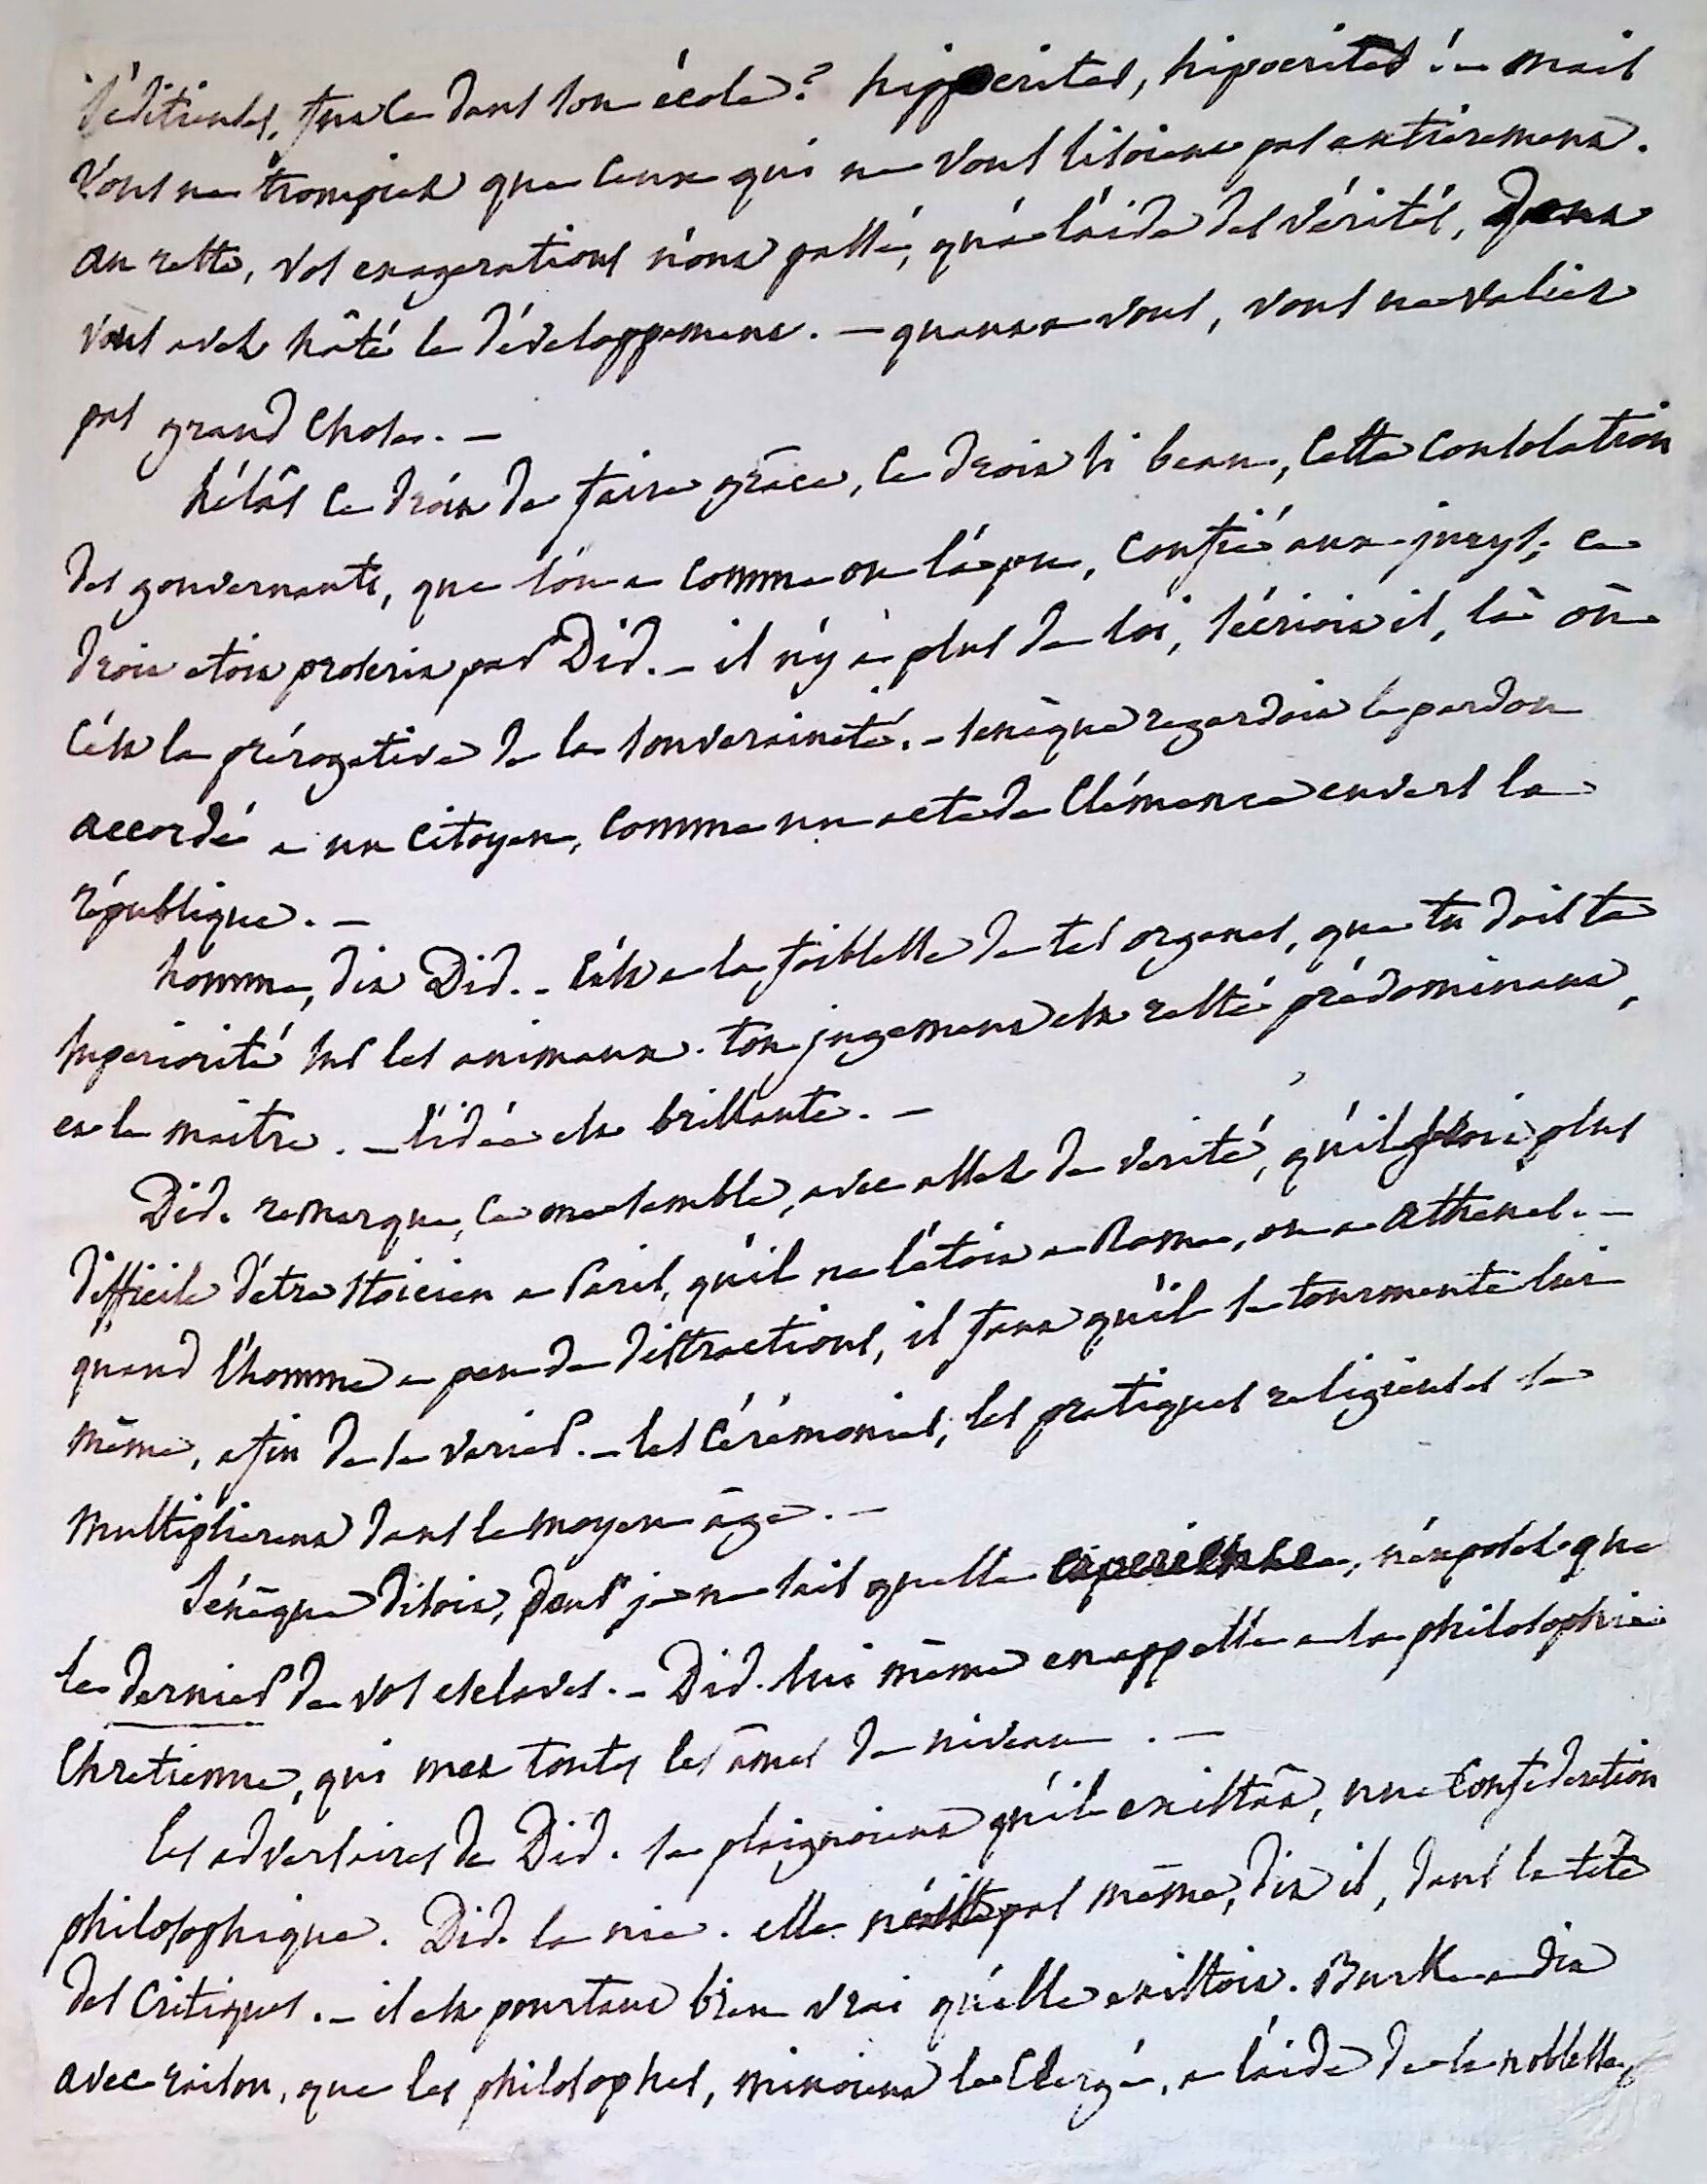 séditieuses, fusse dans son école? hippocrites, hipocrites! - mais
vous ne trompiez que ceux qui ne vous lisoient pas entièrement.
au reste, vos exagerations n'ont passé, qu'à l'aide des vérités, dont
vous avez hâté le développement. - quant a vous, vous ne valiez
pas grand chose. -
hélâs ce droit de faire grâce, ce droit si beau, cette consolation
des gouvernants, que l'on a comme on l'a pu, confié aux jurys; ce
droit etoit proscrit par Did. - il n'y a plus de loi, s'écrioit il, là où
c'est la prérogative de la souveraineté. - senèque regardoit le pardon
accordé a un citoyen, comme un acte de clémence envers la
république. -
homme, dit Did. - c'est a la foiblesse de tes organes, que tu dois ta
superiorité sur les animaux. ton jugement est resté prédominant,
et le maître. - l'idée est brillante. -
Did. remarque, ce me semble, avec assez de verité, qu'il seroit plus
difficile d'être stoicien a Paris, qu'il ne l'étoit a Rome, ou a Athenes. -
quand l'homme a peu de distractions, il faut qu'il se tourmente lui
même, afin de se varier. - les cérémonies, les pratiques religieuses se
multiplierent dans le moyen âge. -
Sénèque disoit, pour je ne sait quelle experience, n'exposez que
le dernier de vos esclaves. - Did. lui même en appelle a la philosophie
Chretienne, qui met toutes les âmes de niveau. -
les adversaires de Did. se plaignoient qu'il existât, une confederation
philosophique. Did. le nie. elle n'existe pas même, dit il, dans la tête
des critiques. - il est pourtant bien vrai qu'elle existoit. Burke a dit
avec raison, que les philosophes, minoient le Clergé, a l'aide de la noblesse,